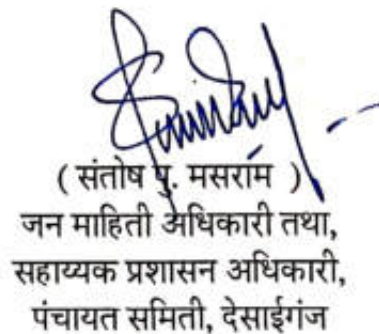 ( संतोष पु. मसराम )
जन माहिती अधिकारी तथा,
सहाय्यक प्रशासन अधिकारी,
पंचायत समिती, देसाईगंज